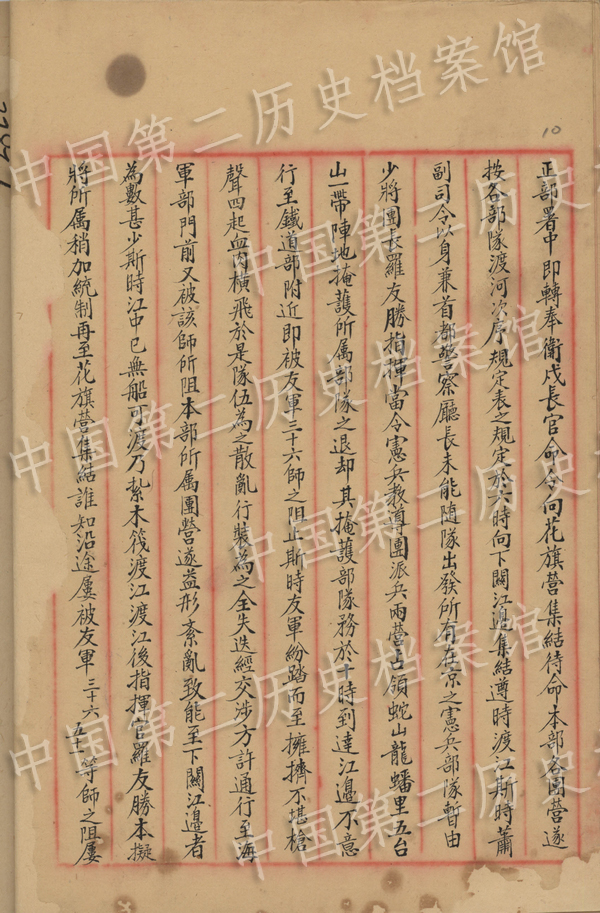 10
正部署中即轉奉衛戍長官命令向花旗營集結待命本部各團營遂
按各部隊渡河次序規定表之規定於六時向下關江邊集結遵時渡江斯時蕭
副司令以身兼首都警察廳長未能隨隊出發所有在京之憲兵部隊暫由
少將團長羅友勝指揮當令憲兵教導團派兵兩營占領蛇山龍蟠里五台
山一帶陣地掩護所属部隊之退却其掩護部隊務於十時到達江邊不意
行至鐵道部附近即被友軍三十六師之阻止斯時友軍紛踏而至擁擠不堪槍
聲四起血肉橫飛於是隊伍為之散亂行裝為之全失迭經交涉方許通行至海
軍部門前又被該師所阻本部所属團營遂益形紊亂致能至下關江邊者
為數甚少斯時江中已無船可渡乃紮木筏渡江渡江後指揮官羅友勝本擬
將所属稍加統制再至花旗營集結誰知沿途屢被友軍三十六 五十一等師之阻屢
中国第二历史档案馆
中国第二历史档案馆
中国第二历史档案馆
中国第二历史档案馆
中国第二历史档案馆
中国第二历史档案馆